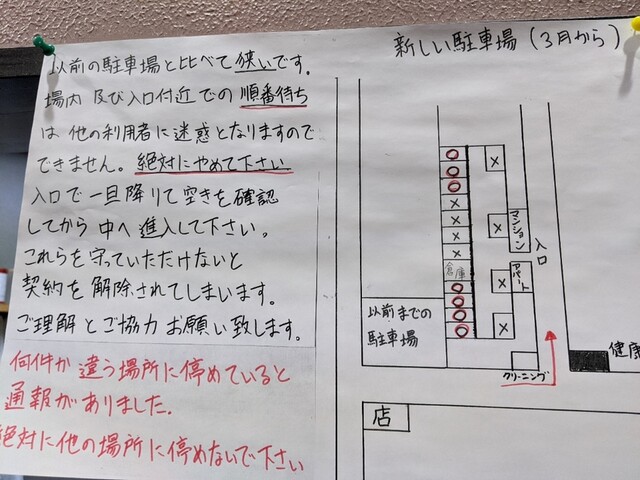 以前の駐車場と比べて狭いです。
場内及び入口付近での順番待ち
は他の利用者に迷惑となりますので
できません。絶対にやめて下さい
入口で一旦降りて空きを確認
してから中へ進入して下さい。
これらを守っていただけないと
契約を解除されてしまいます。
ご理解とご協力お願い致します。
何件か違う場所に停めていると
通報がありました。
絶対に他の場所に停めないで下さい
新しい駐車場(3月から)
○
○
○
×
×
×
×
倉庫
○
○
○
×
×
×
×
マンション
アパート
入口
以前までの
駐車場
クリーニング
健康
店